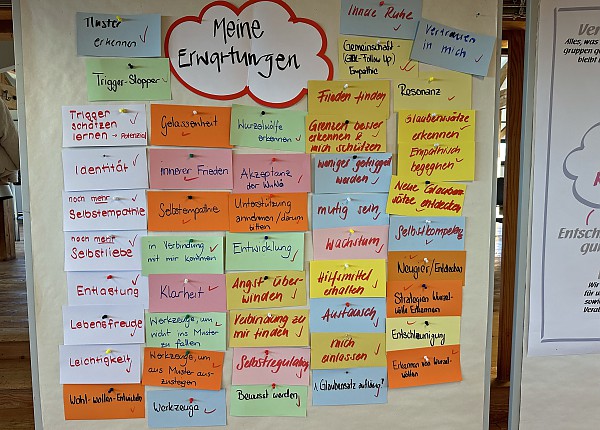 Meine
Erwartungen
Muster
erkennen
Trigger-Stopper
Innere Ruhe
Vertrauen
in mich
Gemeinschaft-
(GfK-Follow Up)
Empathie
Resonanz
Trigger
schätzen
lernen → Potenzial
Identität
noch mehr
Selbstempathie
noch mehr
Selbstliebe
Entlastung
Lebensfreude
Leichtigkeit
Wohl-wollen-Entwickeln
Gelassenheit
Innerer Frieden
Selbstempathie
in Verbindung
mit mir kommen
Klarheit
Werkzeuge, um
nicht ins Muster
zu fallen
Werkzeuge, um
aus Muster aus-
zusteigen
Werkzeuge
Wurzelwölfe
erkennen
Akzeptanz
der WuWö
Unterstützung
annehmen/darum
bitten
Entwicklung
Angst über-
winden
Verbindung zu
mir finden
Selbstregulation
Bewusst werden
Frieden finden
Grenzen besser
erkennen &
mich schützen
weniger getriggert
werden
mutig sein
Wachstum
Hilfsmittel
erhalten
Austausch
mich
einlassen
1 Glaubenssatz auflösen?
Glaubenssätze
erkennen
Empathisch
begegnen
Neue Glaubens-
sätze entdecken
Selbstkompetenz
Neugier/Entdecken
Strategien Wurzel-
wölfe Erkennen
Entschleunigung
Erkennen von Wurzel-
wölfen
Alles, was
bleibt
Entsch
Wir
für u
sowi
Verab